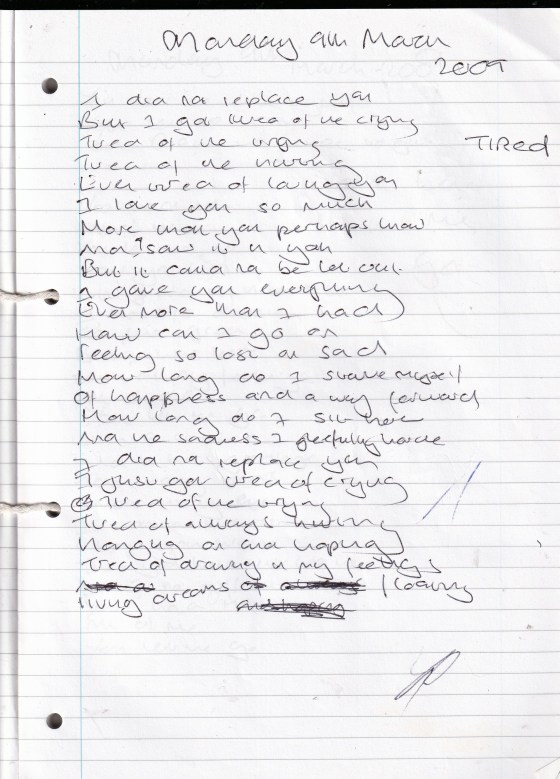 Monday 9th March
2009
TIRED
I did not replace you
But I got tired of the crying
Tired of the trying
Tired of the hurting
Even tired of loving you
I love you so much
More than you perhaps know
And I saw it in you
But it could not be let out.
I gave you everything
Even more than I had
How can I go on
Feeling so lost and sad
How long do I starve myself
Of happiness and a way forward
How long do I sit here
And the sadness I
I did not replace you
I just got tired of crying
Tired of the trying
Tired of always hurting
Hanging on and hoping
Tired of drowning in my feelings
living dreams of